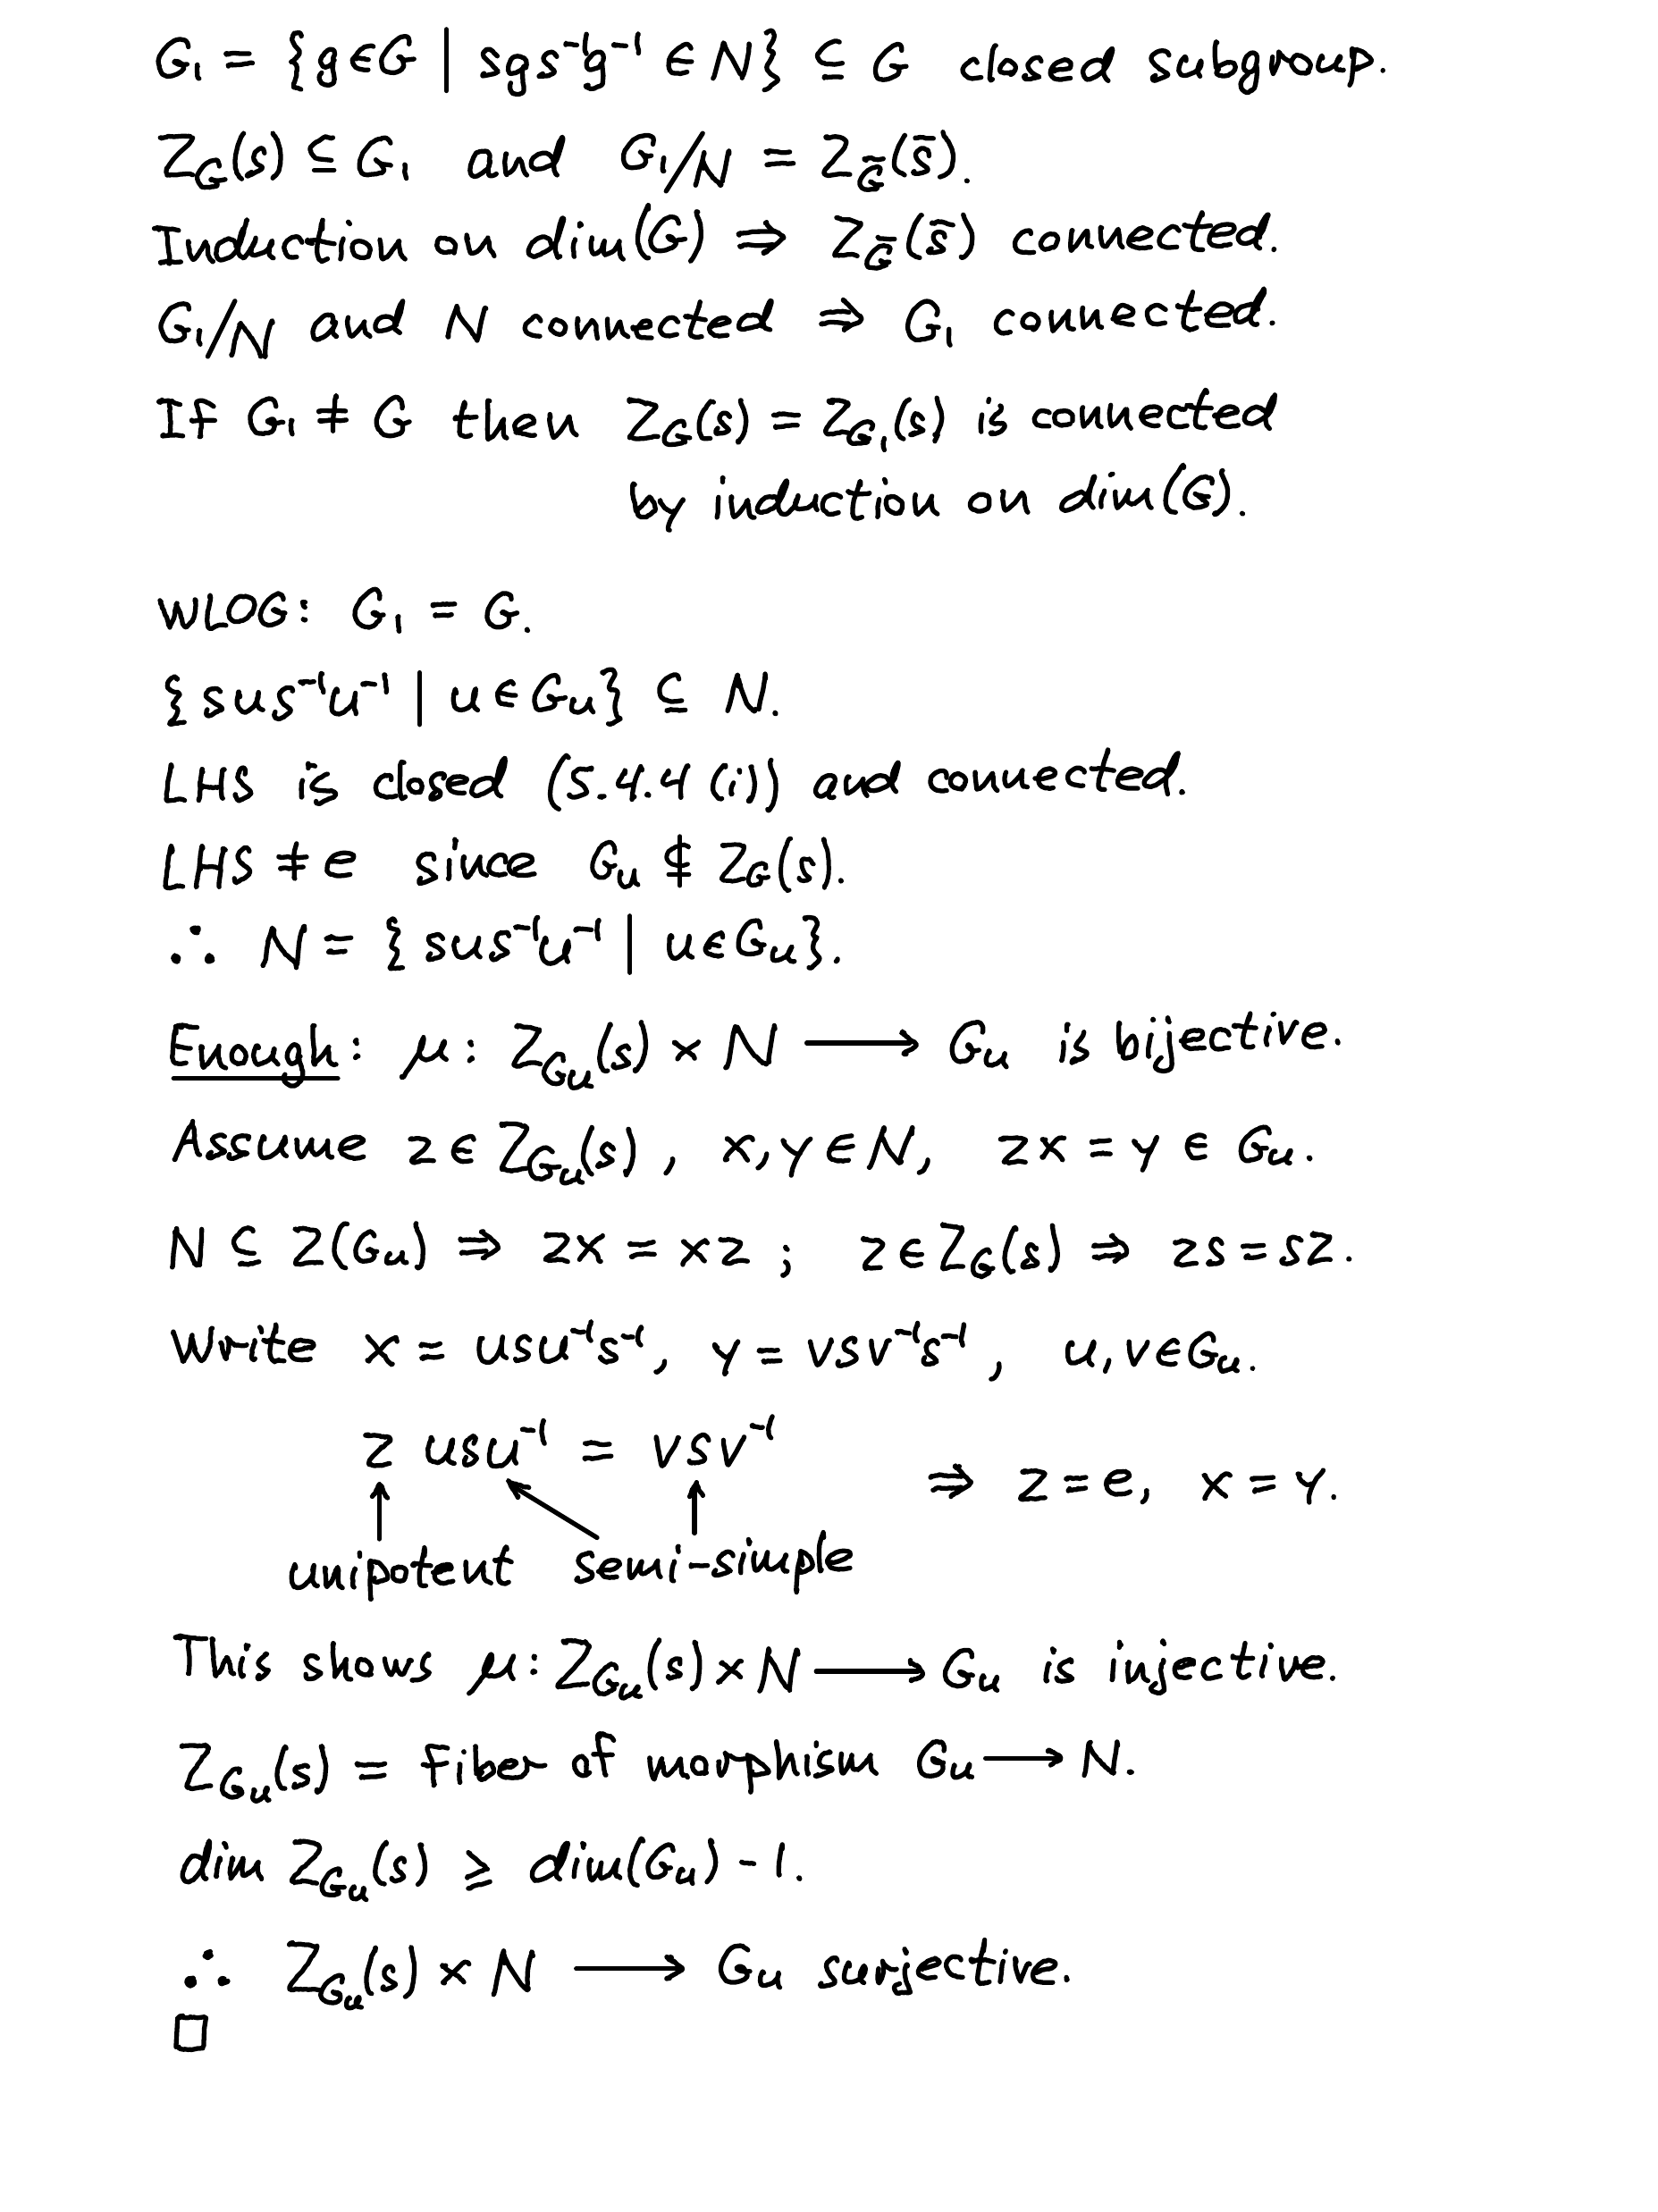 G₁ = {g ∈ G | sgs⁻¹g⁻¹ ∈ N} ⊆ G closed subgroup.
Z_G(s) ⊆ G₁ and G₁/N = Z_G̅(s̅).
Induction on dim(G) ⇒ Z_G̅(s̅) connected.
G₁/N and N connected ⇒ G₁ connected.
If G₁ ≠ G then Z_G(s) = Z_G₁(s) is connected
by induction on dim(G).
WLOG: G₁ = G.
{sus⁻¹u⁻¹ | u ∈ Gᵤ} ⊆ N.
LHS is closed (5.4.4 (i)) and connected.
LHS ≠ e since Gᵤ ⊈ Z_G(s).
∴ N = {sus⁻¹u⁻¹ | u ∈ Gᵤ}.
Enough: μ: Z_Gᵤ(s) × N ⟶ Gᵤ is bijective.
Assume z ∈ Z_Gᵤ(s), x, y ∈ N, zx = y ∈ Gᵤ.
N ⊆ Z(Gᵤ) ⇒ zx = xz ; z ∈ Z_G(s) ⇒ zs = sz.
Write x = usu⁻¹s⁻¹, y = vsv⁻¹s⁻¹, u, v ∈ Gᵤ.
z usu⁻¹ = vsv⁻¹ ⇒ z = e, x = y.
↑ ↖ ↑
unipotent semi-simple
This shows μ: Z_Gᵤ(s) × N ⟶ Gᵤ is injective.
Z_Gᵤ(s) = fiber of morphism Gᵤ ⟶ N.
dim Z_Gᵤ(s) ≥ dim(Gᵤ) - 1.
∴ Z_Gᵤ(s) × N ⟶ Gᵤ surjective.
□